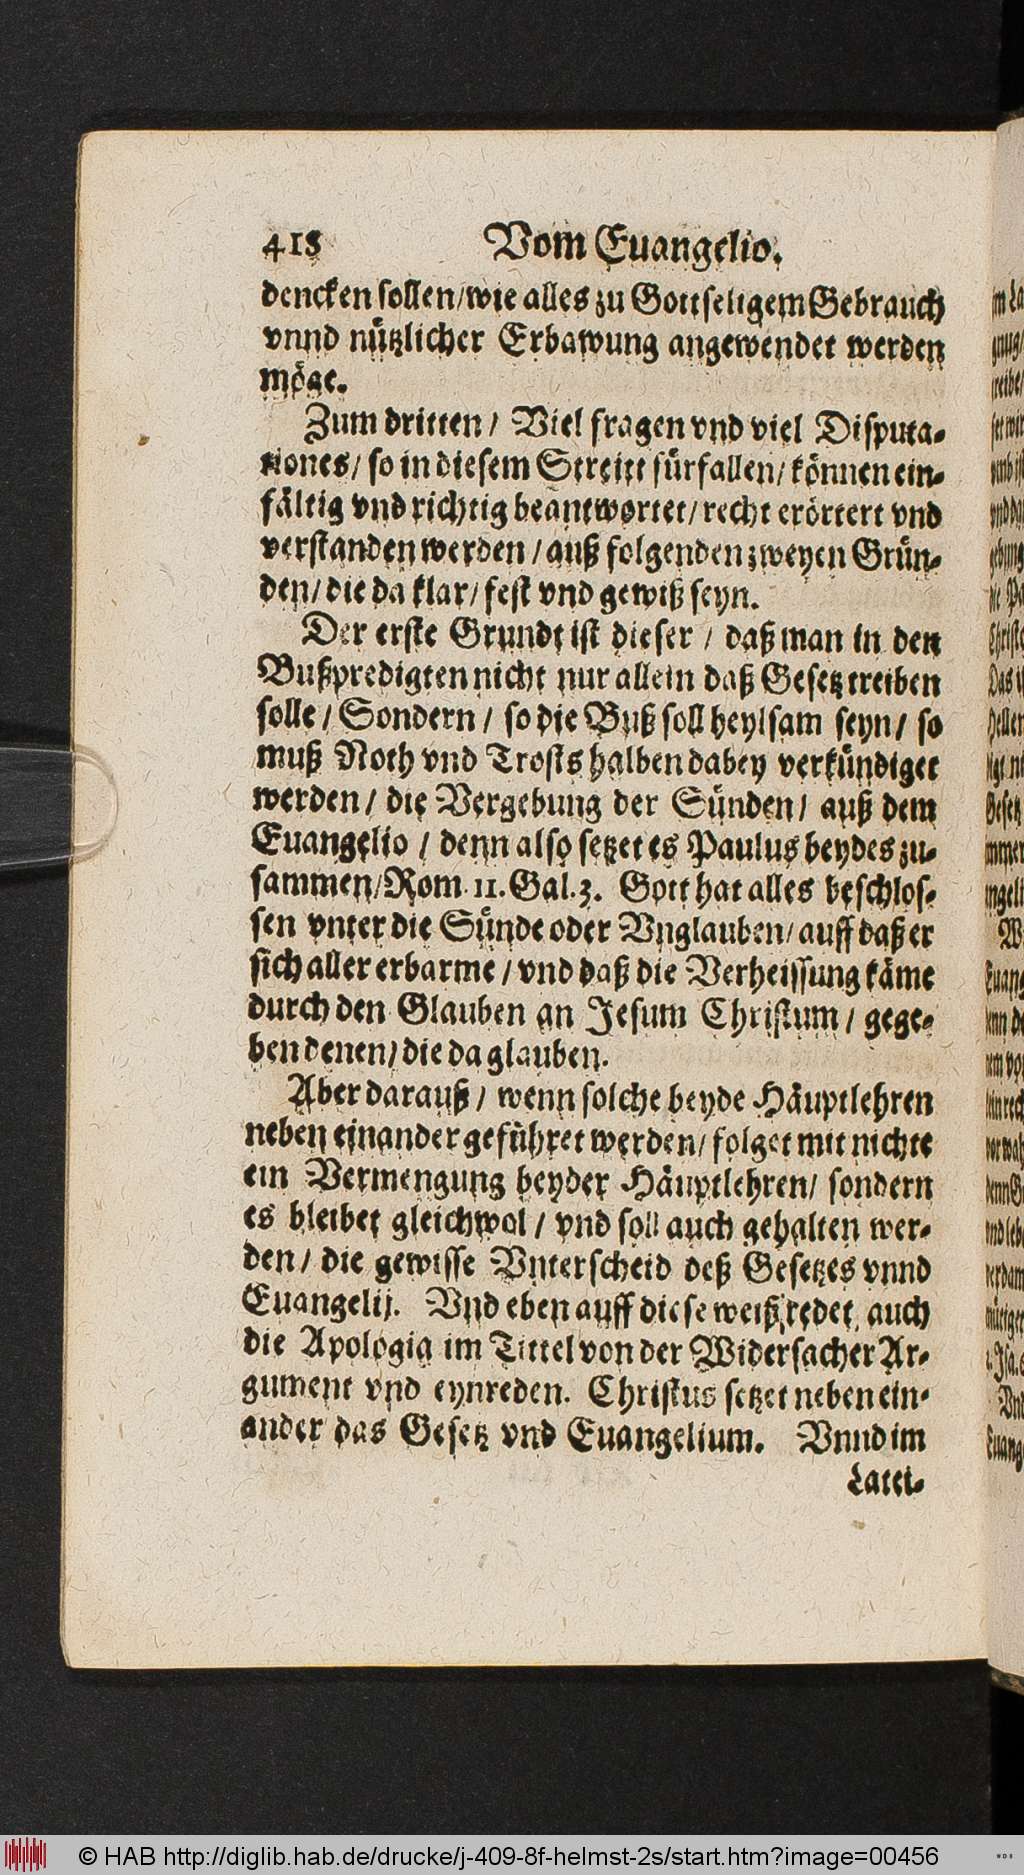 418 Vom Euangelio.
dencken sollen/wie alles zu Gottseligem Gebrauch
vnnd nützlicher Erbawung angewendet werden
möge.
Zum dritten / Viel fragen vnd viel Disputa-
tiones/ so in diesem Streitt fürfallen/ können ein-
fältig vnd richtig beantwortet/ recht erörtert vnd
verstanden werden / auß folgenden zweyen Grün-
den/ die da klar/ fest vnd gewiß seyn.
Der erste Grundt ist dieser / daß man in den
Bußpredigten nicht nur allein daß Gesetz treiben
solle / Sondern / so die Buß soll heylsam seyn / so
muß Noth vnd Trosts halben dabey verkündiget
werden / die Vergebung der Sünden / auß dem
Euangelio / denn also setzet es Paulus beydes zu-
sammen/Rom. 11. Gal. 3. Gott hat alles beschlos-
sen vnter die Sünde oder Vnglauben/ auff daß er
sich aller erbarme / vnd daß die Verheissung käme
durch den Glauben an Jesum Christum / gege-
ben denen/ die da glauben.
Aber darauß / wenn solche beyde Häuptlehren
neben einander geführet werden/ folget mit nichte
ein Vermengung beyder Häuptlehren/ sondern
es bleibet gleichwol / vnd soll auch gehalten wer-
den / die gewisse Vnterscheid deß Gesetzes vnnd
Euangelij. Vnd eben auff diese weiß redet auch
die Apologia im Tittel von der Widersacher Ar-
gument vnd eynreden. Christus setzet neben ein-
ander das Gesetz vnd Euangelium. Vnnd im
Latei-
© HAB http://diglib.hab.de/drucke/j-409-8f-helmst-2s/start.htm?image=00456